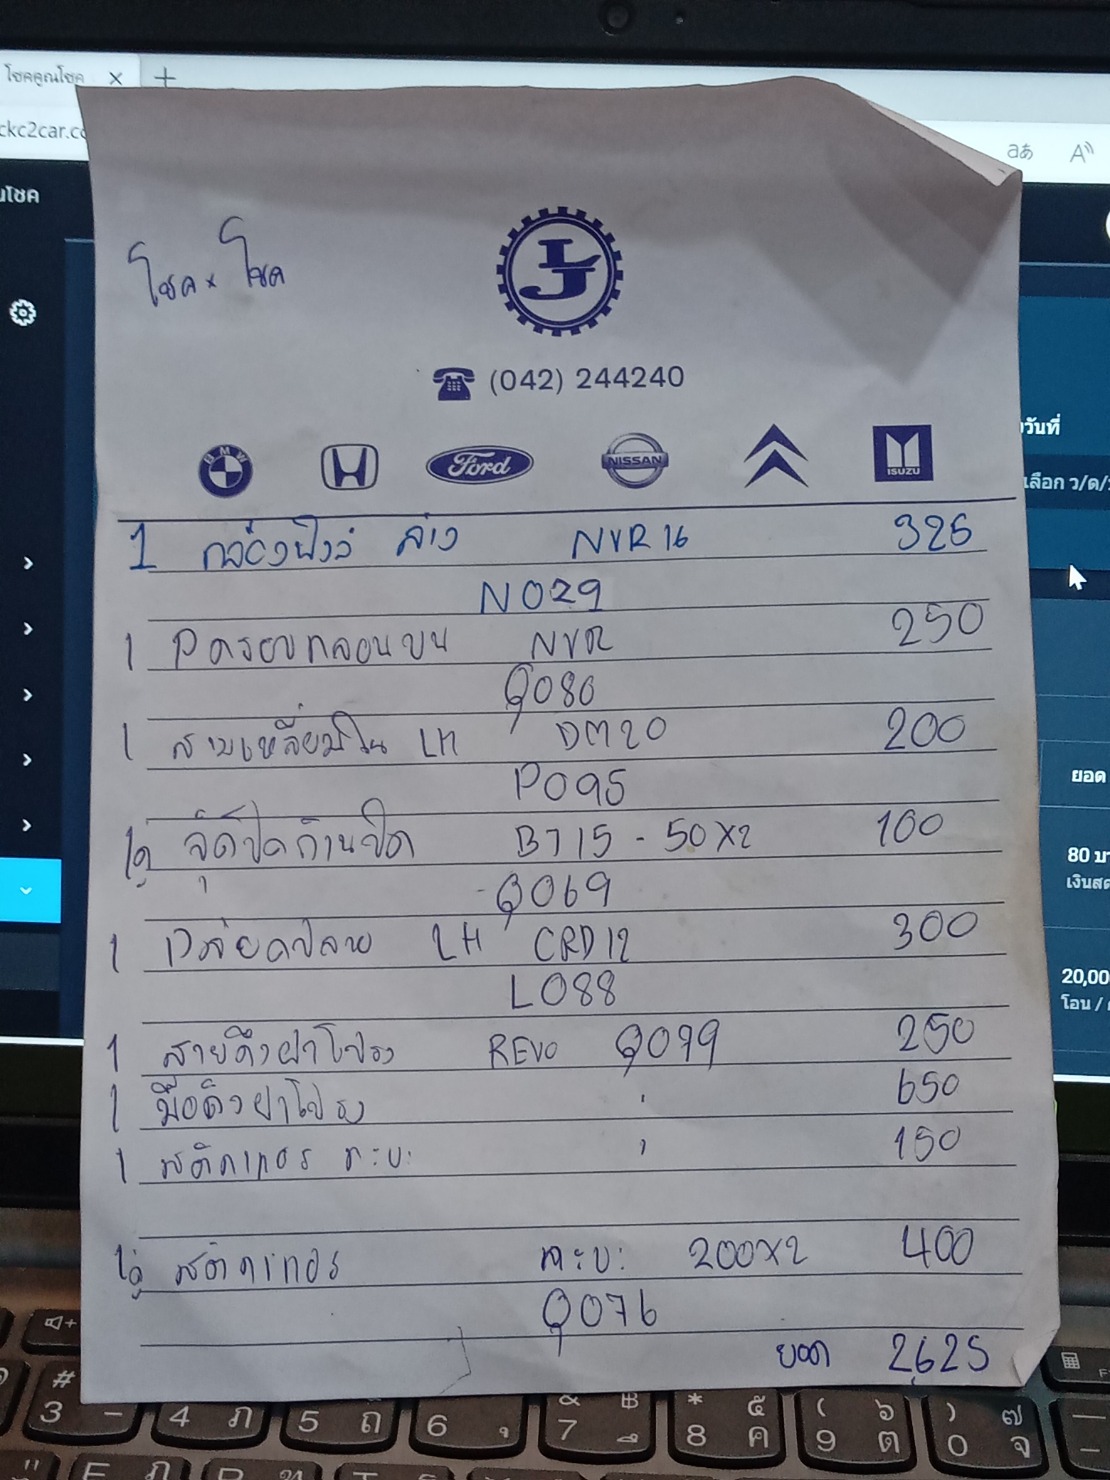 โชคคูณโชค
ckc2car.co
aあ A
นโชค
โชค x โชค
LJ
(042) 244240
BMW
Ford
NISSAN
ISUZU
วันที่
เลือก ว/ด/
1 กล่องฟิวส์ ล่าง NVR16 325
N029
1 ฝาครอบกลอนบน NVR 250
Q080
1 สามเหลี่ยมใน LH DM20 200
P095
1คู่ จุ๊ดปิดก้านปัด BT15 - 50X2 100
Q069
1 LH CRD12 300
L088
1 สายดึงฝาโปรง REVO Q079 250
1 มือดึงฝาโปรง " 650
1 สติกเกอร์ กะบะ " 150
1คู่ สติกเกอร์ กะบะ 200X2 400
Q076
ยอด 2,625
ยอด
80 บา
เงินสด
20,00
โอน /
# 3 - 4 ภ 5 ถ 6 ุ & 7 ฿ ึ * 8 ๕ ค ( 9 ๖ ต ) 0 ๗ จ